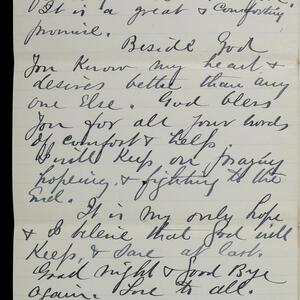 It is a great & Comforting
promise.
Beside God
You Know my heart &
desires better than any
one Else. God bless
You for all your words
of comfort & help
I will Keep on praying
hopeing & fighting to the
End.
It is my only hope
& I beleive that God will
Keep, & save at last.
Good night & Good Bye
again. Love to all.